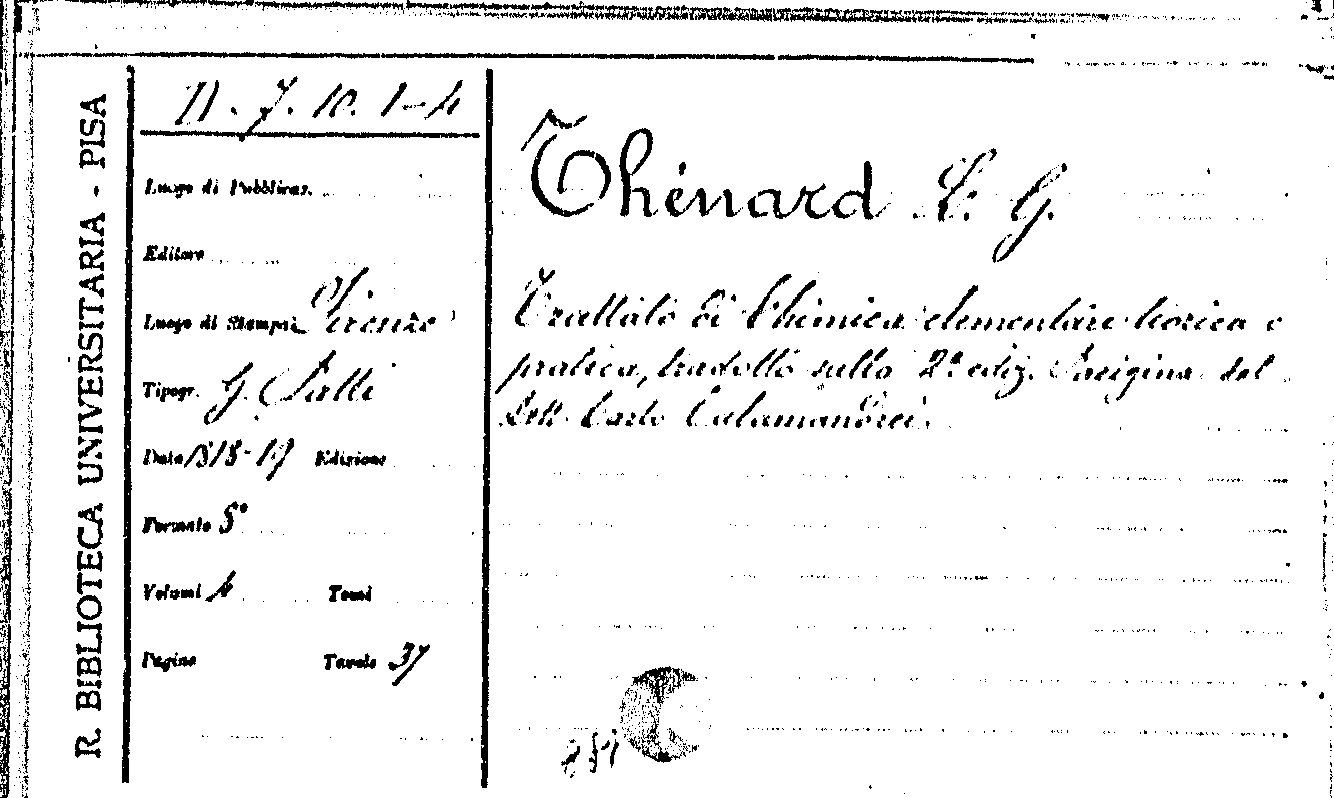 R. BIBLIOTECA UNIVERSITARIA - PISA
N. 7. 10. 1-4
Luogo di Pubblicaz.
Editore
Luogo di Stampa Firenze
Tipogr. G. Piatti
Data 1818-19 Edizione
Formato 8°
Volumi 4 Tomi
Pagine Tavole 37
Thénard L. G.
Trattato di Chimica elementare teorica e
pratica, tradotto sulla 2ª ediz. Parigina dal
Dott. Carlo Calamandrei.